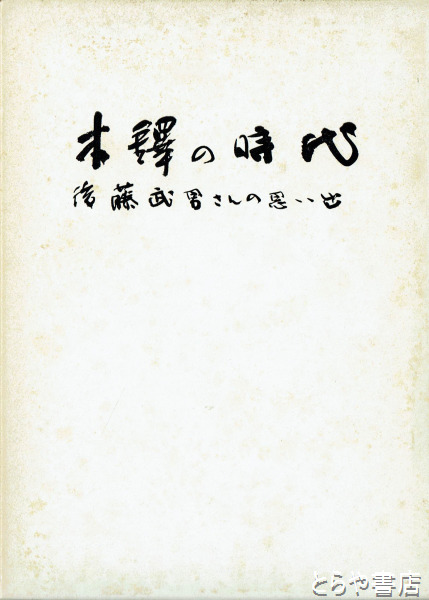 木鐸の時代
後藤武男さんの思い出
とらや書店